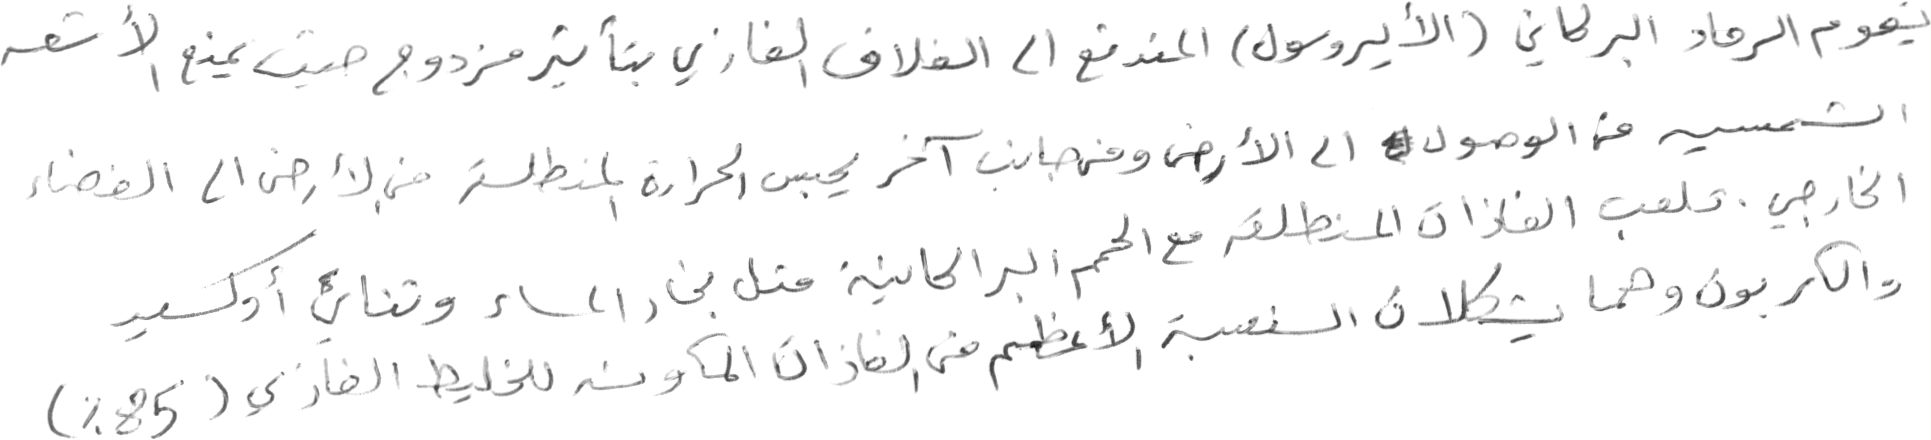 يقوم الرماد البركاني (الأيروسول) المندفع الى الغلاف الغازي بتأثير مزدوج حيث يمنع الأشعه
الشمسيه من الوصول الى الأرض ومن جانب آخر يحبس الحرارة المنطلقة من الأرض الى الفضاء
الخارجي . تلعب الغازات المنطلقه مع الحمم البراكانية مثل بخار الماء وثنائي أوكسيد
والكربون وهما يشكلان النسبة الأعظم من الغازات المكونه للخليط الغازي (85%)